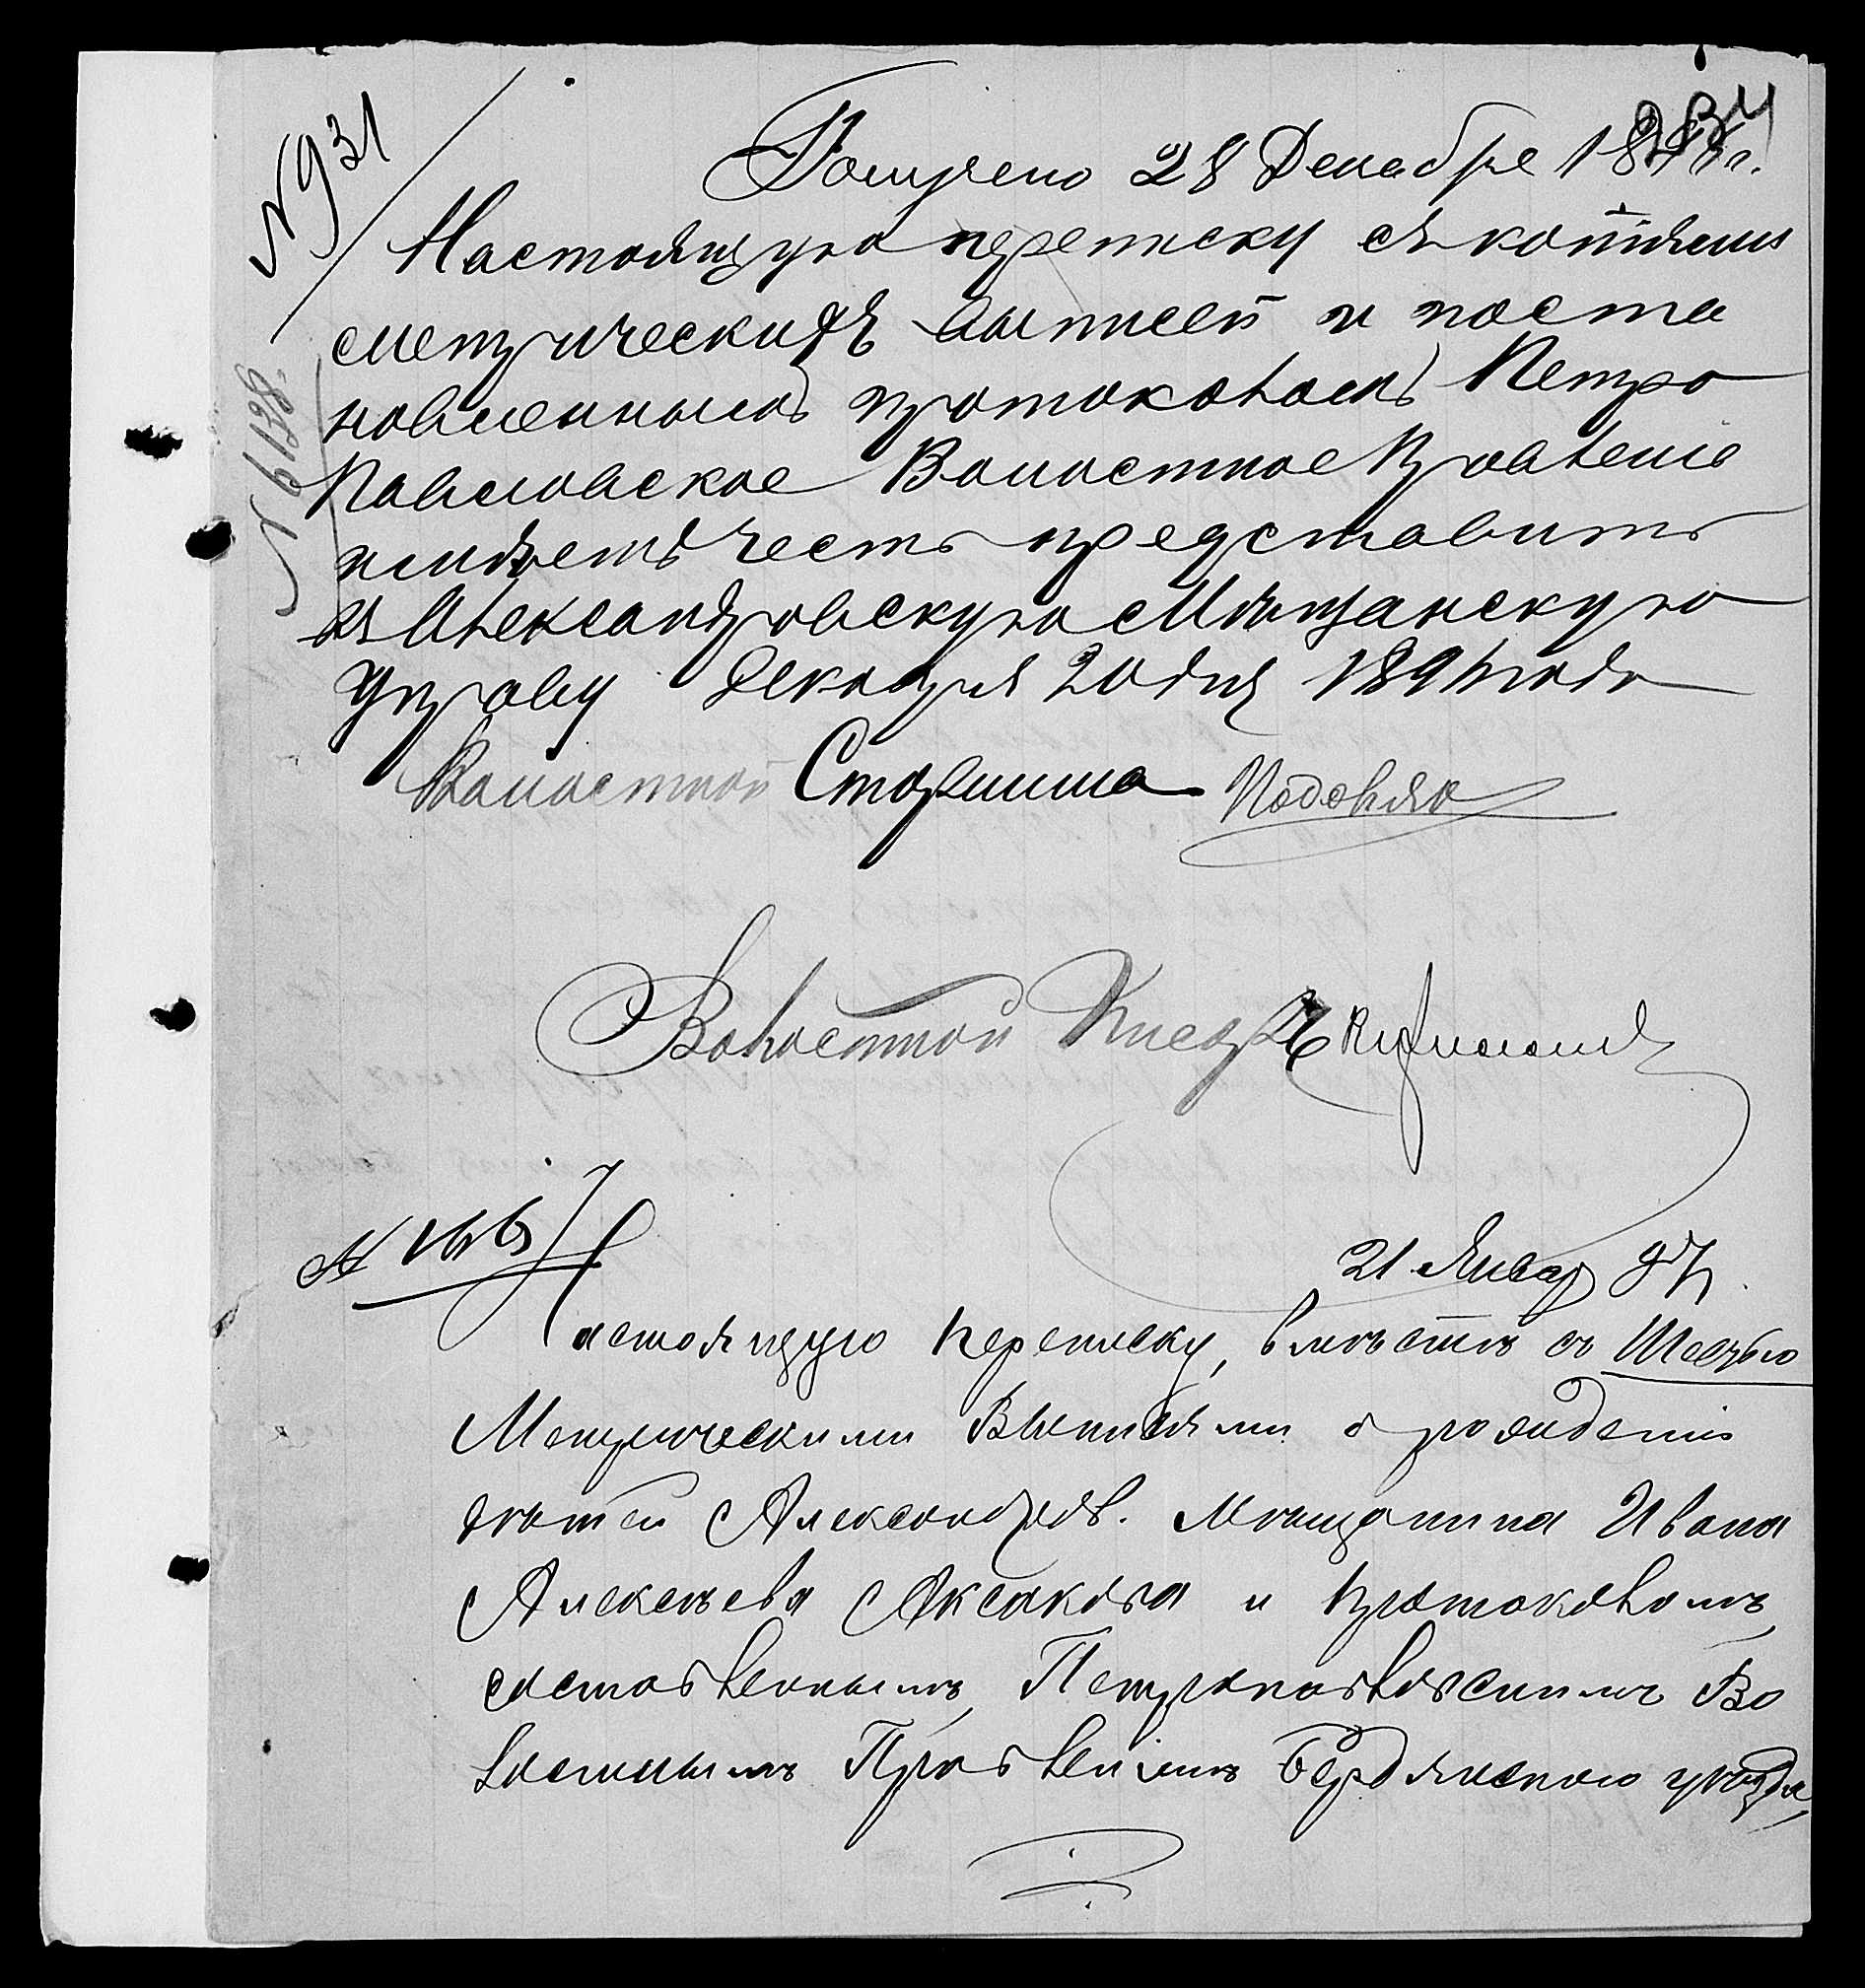 234
№ 931
Получено 28 Декабря 189 г.
Настоящую переписку съ копіями
метрическихъ выписей и поста
новленнымъ протоколомъ Петро
Павловское Волостное Правленіе
№ 6138.
имѣетъ честь представить
въ Александровскую Мѣщанскую
Управу Декабря 20 дня 189 года
Волостной Старшина
Волостной Писарь
№ 166
21 Январ 97
Настоящую переписку, вмѣстѣ съ Шестью
Метрическими Выписями о рожденіи
дѣтей Александров. мѣщанина Ивана
Алексѣева Аксакова и протоколомъ,
составленнымъ Петропавловскимъ Во
лостнымъ Правленіемъ Бердянскаго уѣзда,